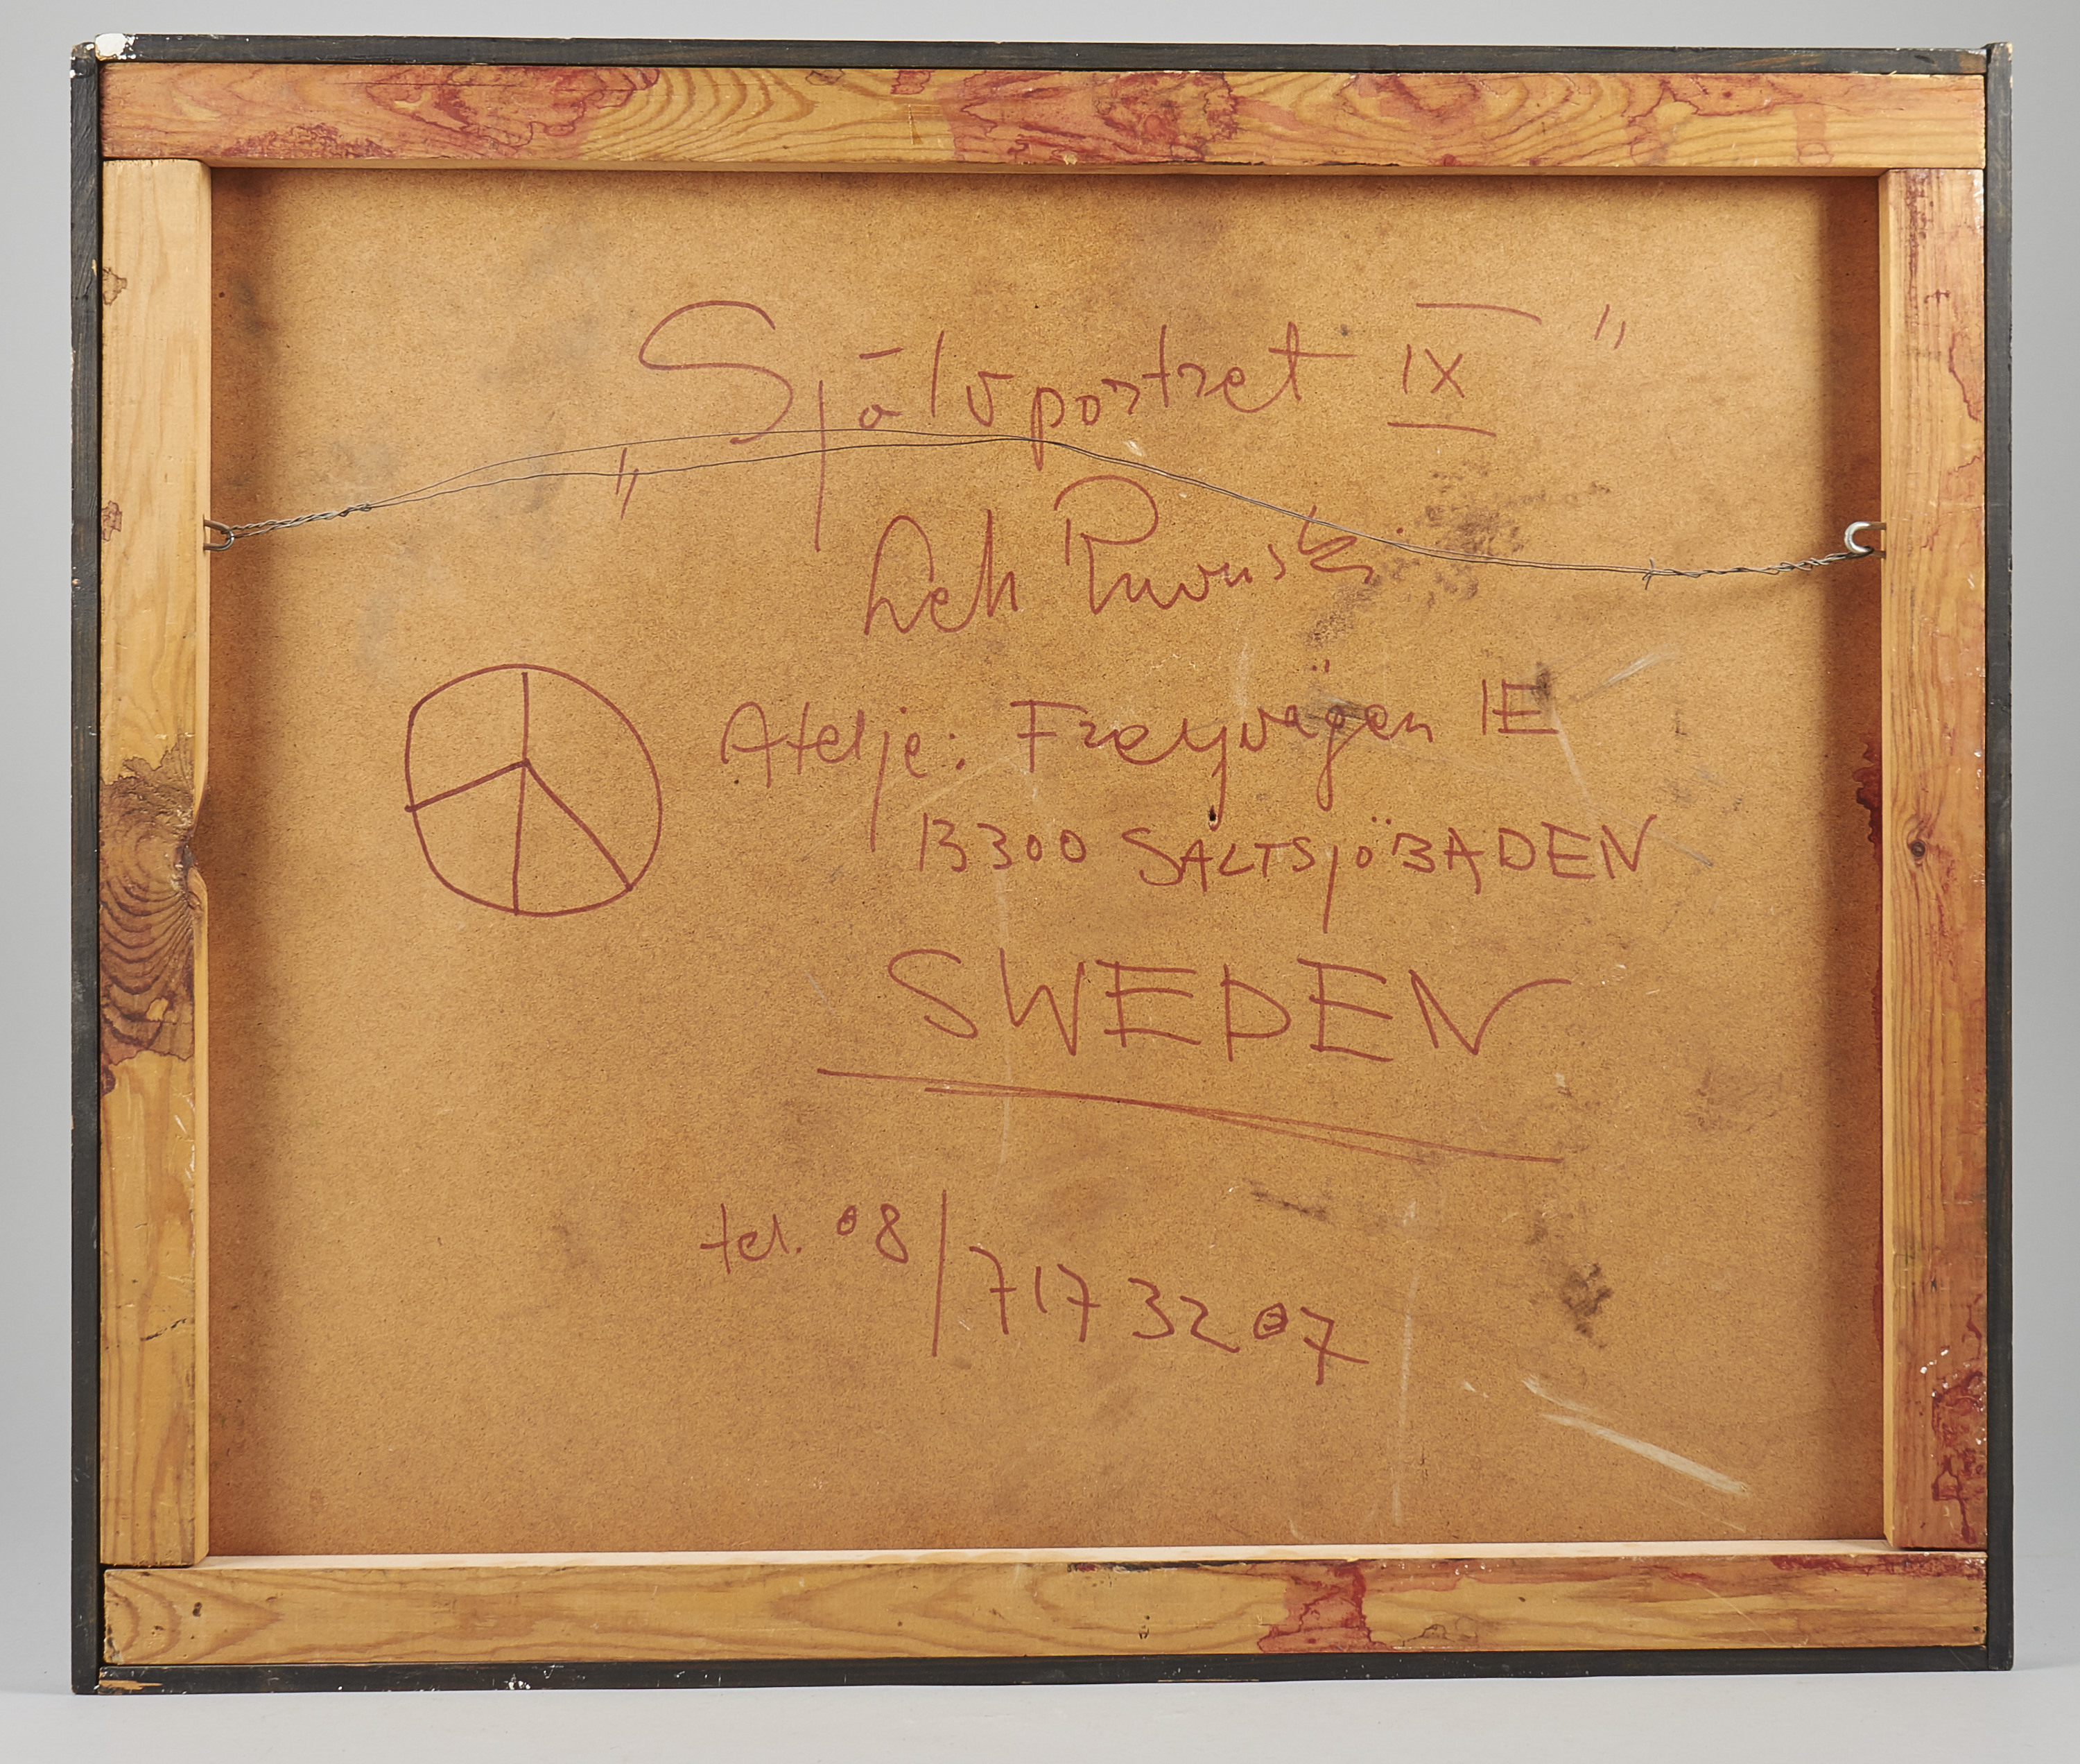 "Självportret IX"
Lech
Ateljé: Freyvägen 1E
13300 SALTSJÖBADEN
SWEDEN
tel. 08/7173207